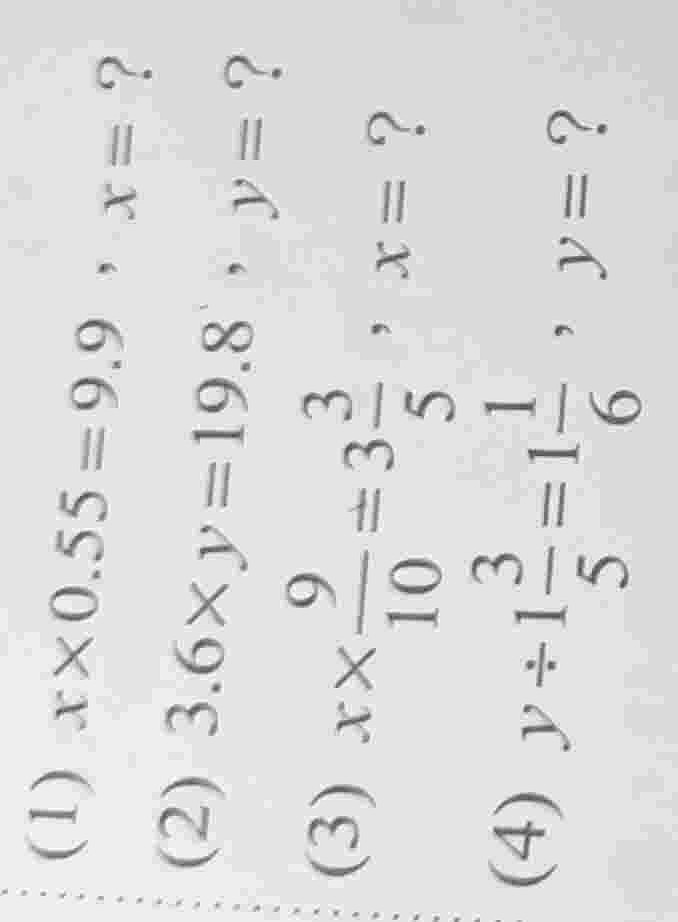 (1) x×0.55=9.9 , x=?
(2) 3.6×y=19.8 , y=?
(3) x×9/10=3 3/5 , x=?
(4) y÷1 3/5=1 1/6 , y=?